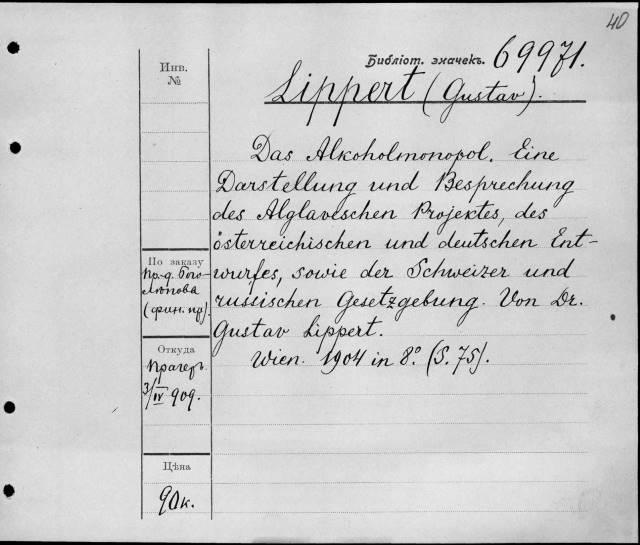 40
Инв.
№
Библіот. значекъ. 69971.
Lippert (Gustav).
Das Alkoholmonopol. Eine
Darstellung und Besprechung
des Alglaveschen Projektes, des
österreichischen und deutschen Ent-
wurfes, sowie der Schweizer und
russischen Gesetzgebung. Von Dr.
Gustav Lippert.
Wien. 1904 in 8° (S. 75).
По заказу
пр-д. Бого-
лѣпова
(фин. пр).
Откуда
Прагеръ
3/IV 909.
Цѣна
90к.